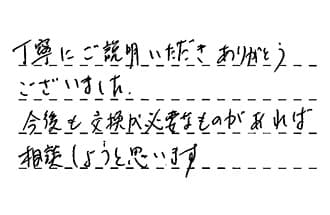 丁寧にご説明いただきありがとう
ございました.
今後も交換が必要なものがあれば
相談しようと思います